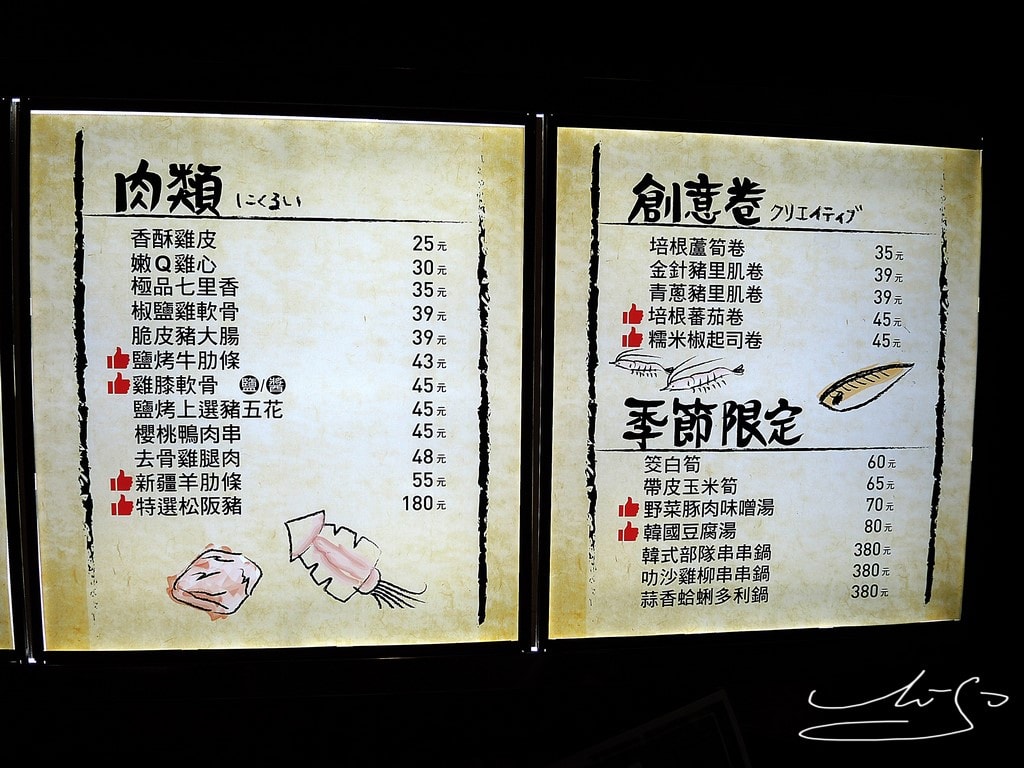 肉類 にくるい
香酥雞皮 25元
嫩Q雞心 30元
極品七里香 35元
椒鹽雞軟骨 39元
脆皮豬大腸 39元
鹽烤牛肋條 43元
雞膝軟骨 鹽/醬 45元
鹽烤上選豬五花 45元
櫻桃鴨肉串 45元
去骨雞腿肉 48元
新疆羊肋條 55元
特選松阪豬 180元
創意卷 クリエイティブ
培根蘆筍卷 35元
金針豬里肌卷 39元
青蔥豬里肌卷 39元
培根蕃茄卷 45元
糯米椒起司卷 45元
季節限定
筊白筍 60元
帶皮玉米筍 65元
野菜豚肉味噌湯 70元
韓國豆腐湯 80元
韓式部隊串串鍋 380元
叻沙雞柳串串鍋 380元
蒜香蛤蜊多利鍋 380元